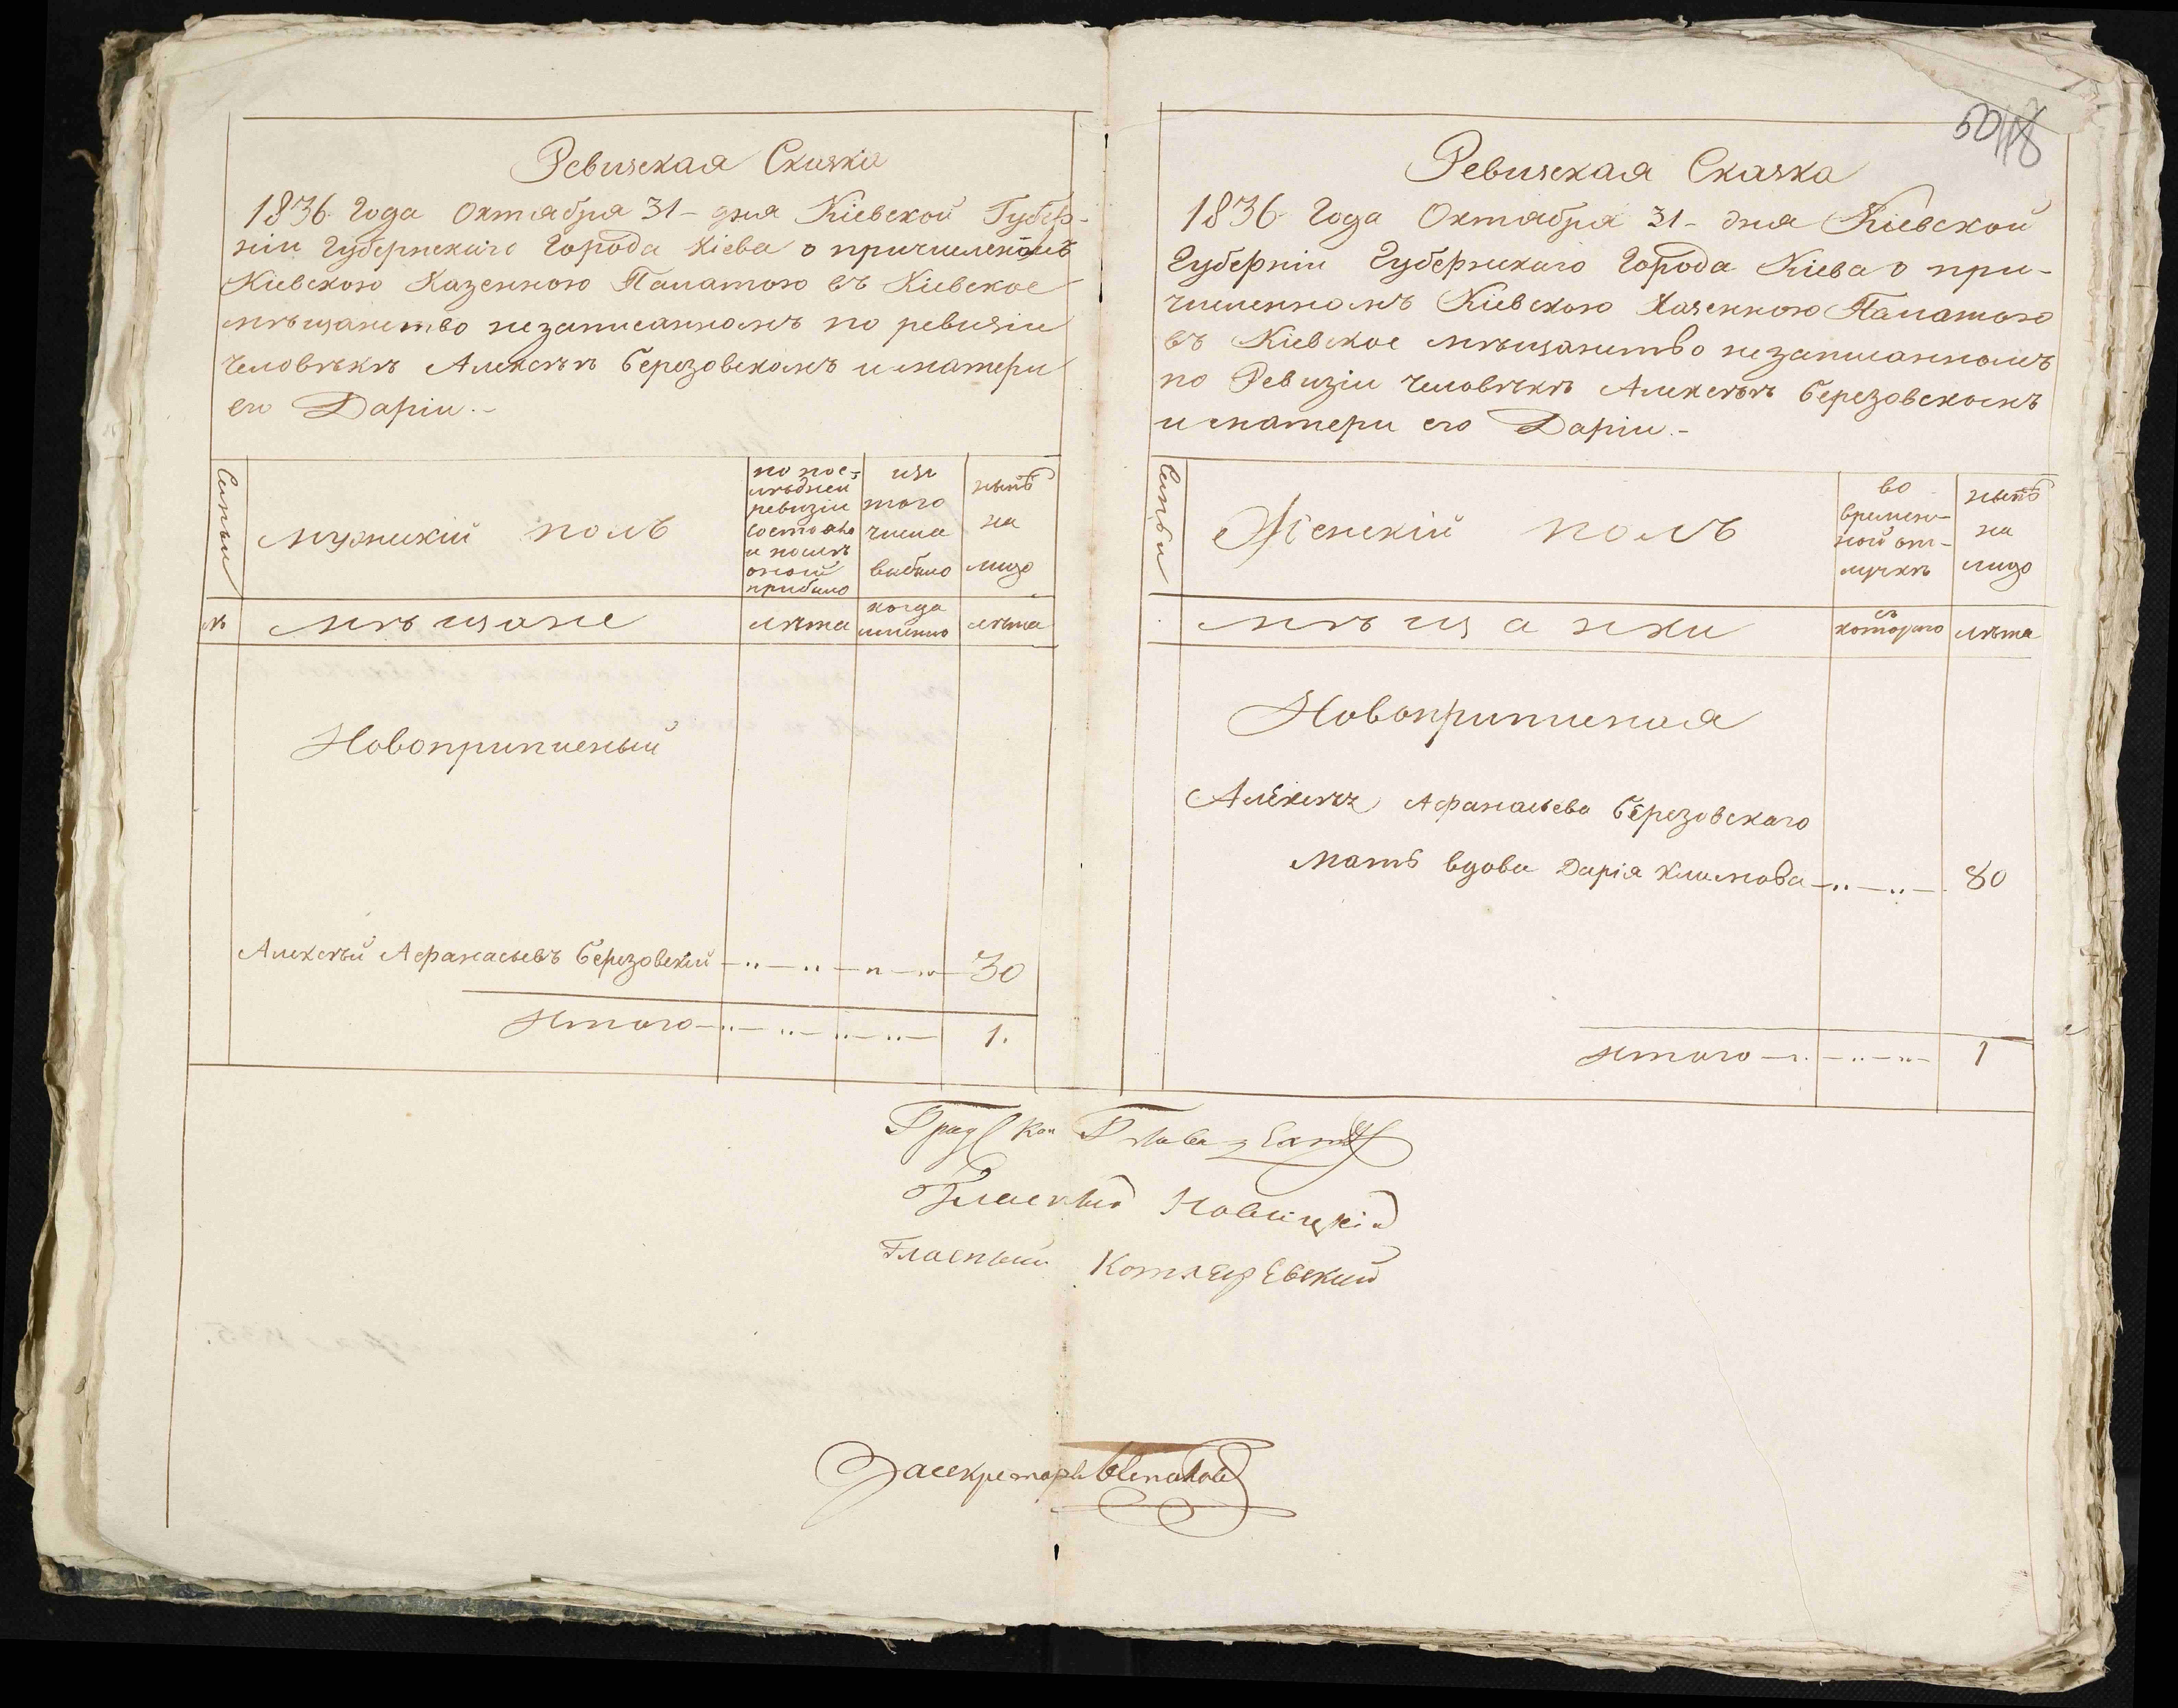 Ревизская Сказка
1836 Года Октября 31 - дня Кіевской Губер-
ніи Губернскаго Города Кіева о причисленомъ
Кіевскою Казенною Палатою въ Кіевское
мѣщанство незаписанномъ по ревизіи
человѣкѣ Алексѣѣ Березовскомъ и матери
его Даріи.-
Семьи
мужискій полъ
по пос-
лѣдней
ревизіи
состояло
и послѣ
оной
прибыло
изъ
того
числа
выбыло
нынѣ
на
лицо
№
мѣщане
лѣта
когда
имянно
лѣта
Новоприписный
Алексѣй Афанасьевъ Березовскій 30
Итого 1.
50
Ревизская Сказка
1836 Года Октября 31 - дня Кіевской
Губерніи Губернскаго Города Кіева о при-
численномъ Кіевскою Казенною Палатою
въ Кіевское мѣщанство незаписанномъ
по Ревизіи человѣкѣ Алексѣѣ Березовскомъ
и матери его Даріи.-
Семьи
Женскій полъ
во
времен-
ной от-
лучкѣ
нынѣ
на
лицо
мѣщанки
съ
котораго
лѣта
Новоприписная
Алексѣя Афанасьева Березовскаго
мать вдова Дарія Климова 80
Итого 1
Градской Глава
Гласный Новицкій
Гласный Котляревский
За секретаря